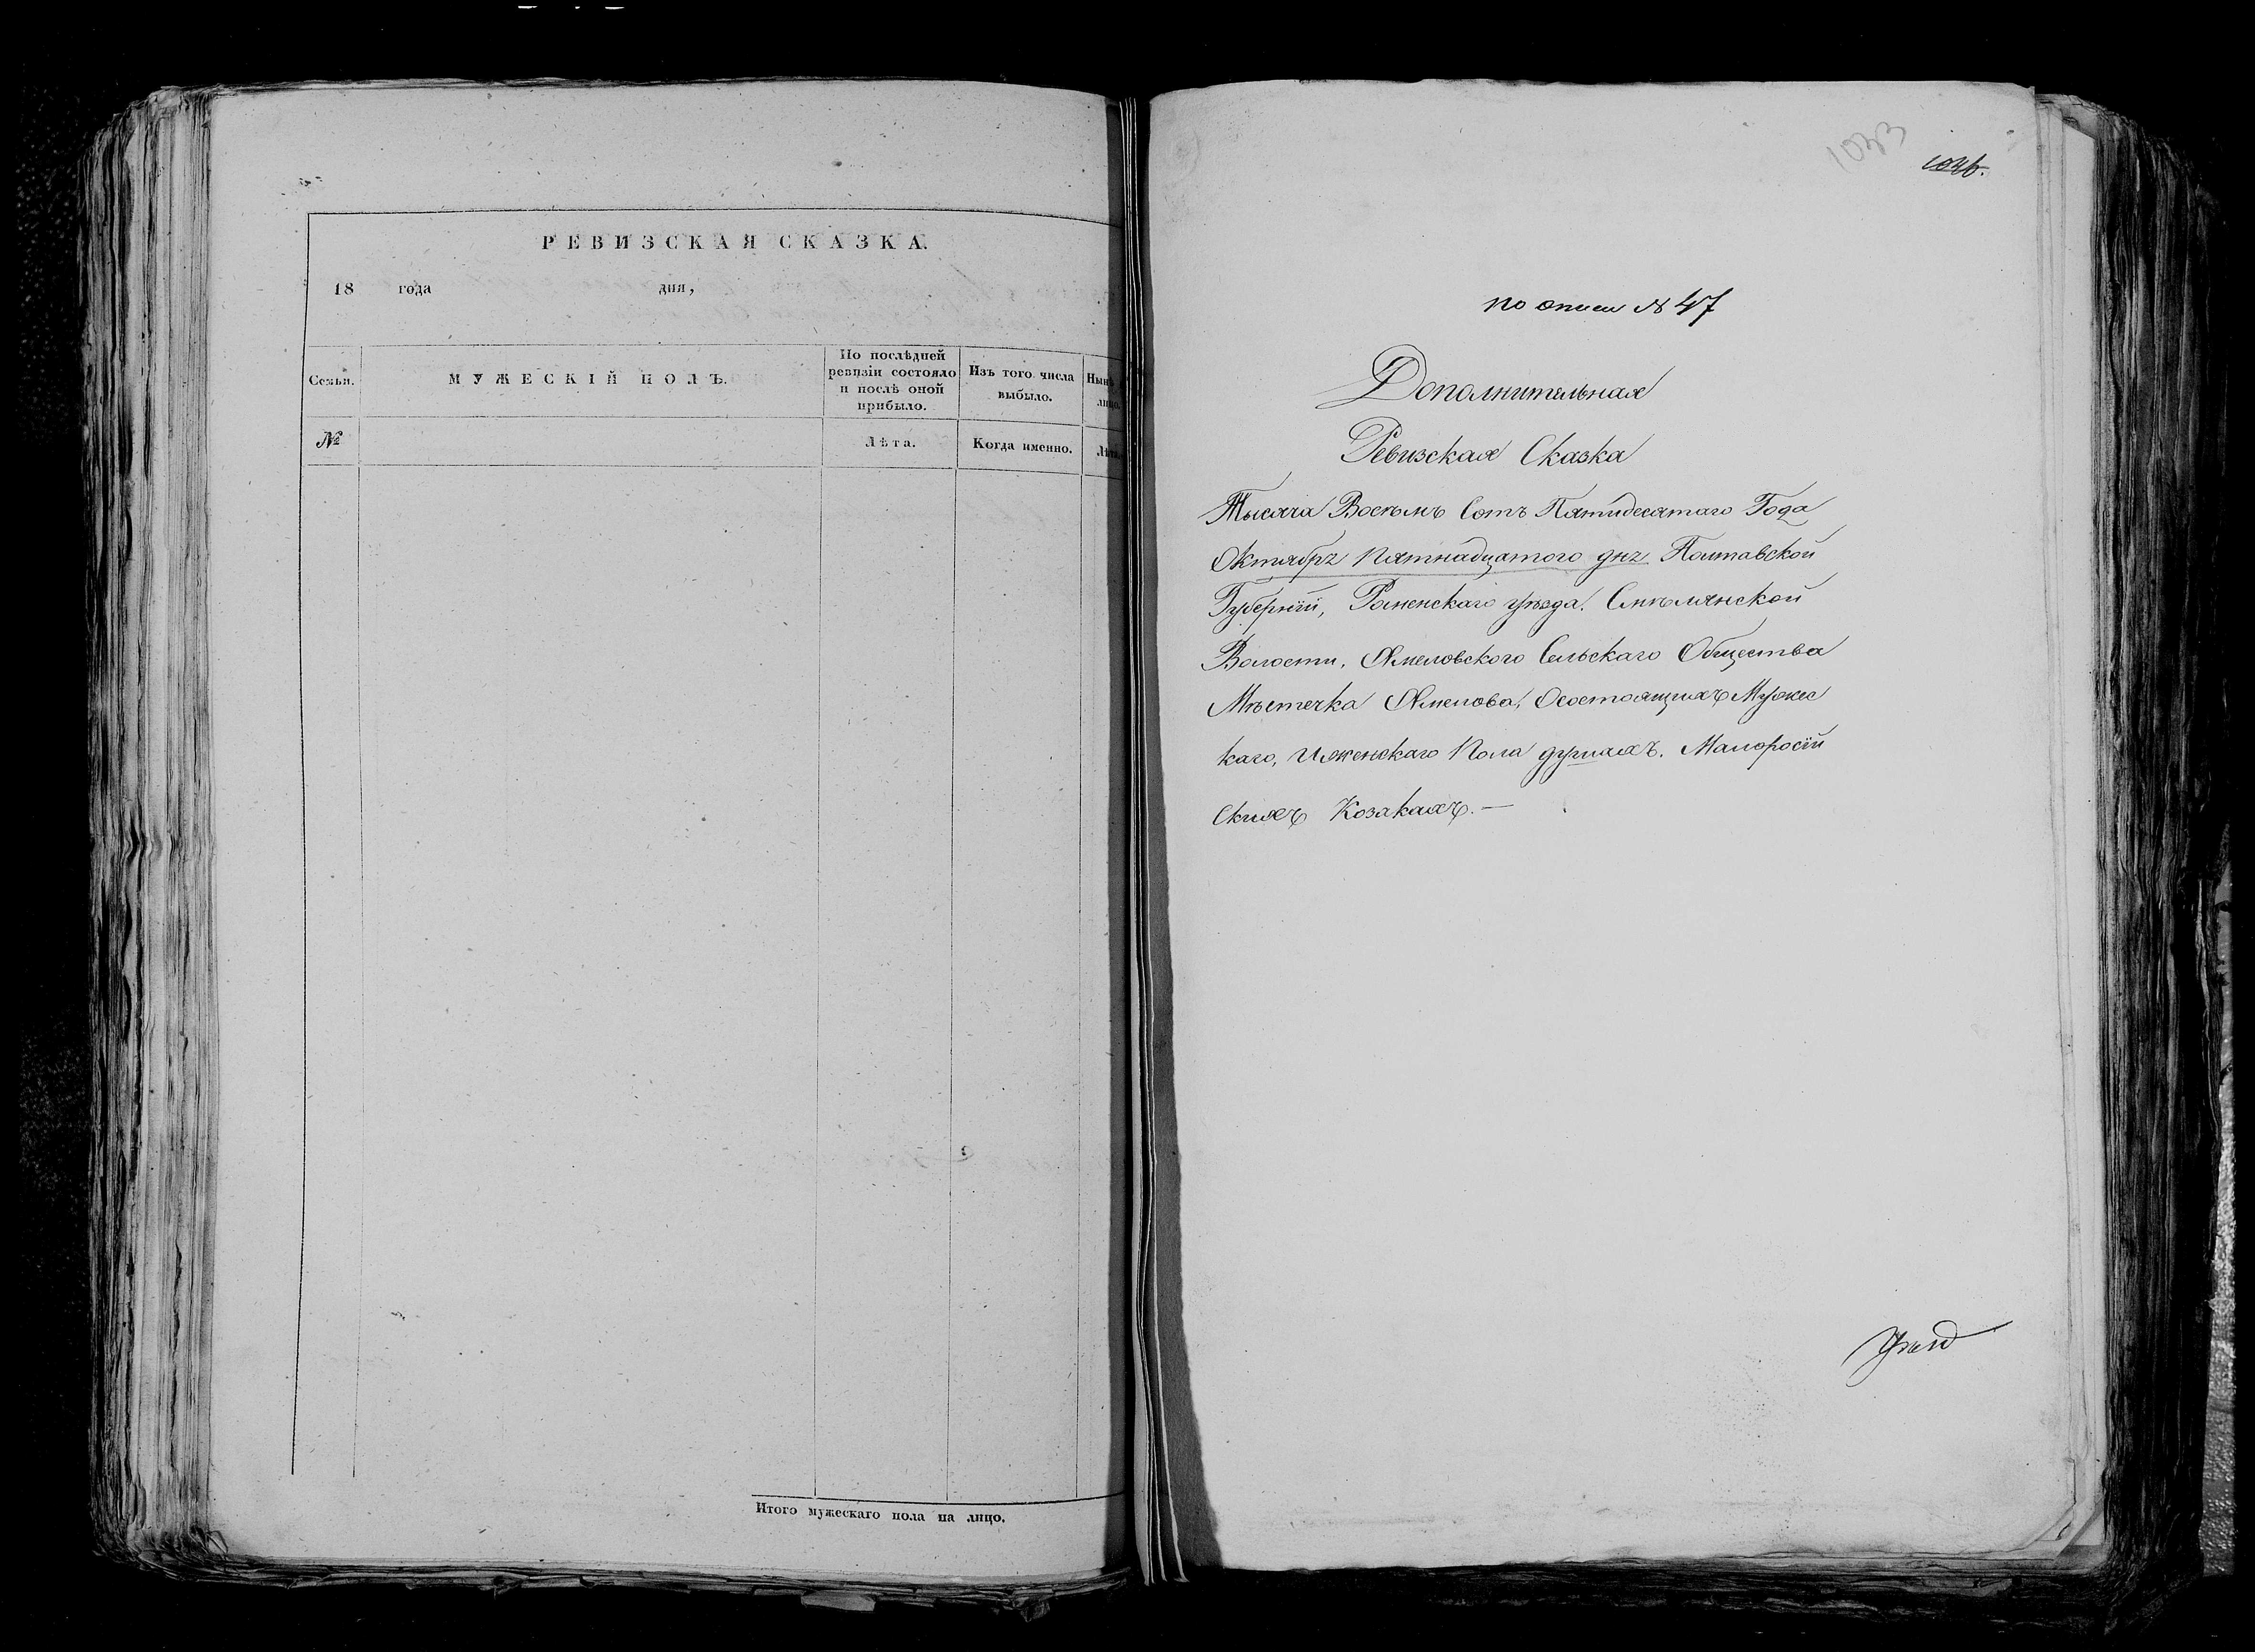 РЕВИЗСКАЯ СКАЗКА.
18 года дня,
Семьи.
МУЖЕСКІЙ ПОЛЪ.
По послѣдней
ревизіи состояло
и послѣ оной
прибыло.
Изъ того числа
выбыло.
Нынѣ
лицо.
№
Лѣта.
Когда именно.
Лѣта.
Итого мужескаго пола на лицо.
1033
по описи № 47
Дополнительная
Ревизская Сказка
Тысяча Восемь Сотъ Пятидесятаго Года
Октября пятнадцатого дня Полтавской
Губерніи, Роменскаго уѣзда. Смѣлянской
Волости, Сельскаго Общества
Мѣстечка Осостоящихъ Мужес
каго, Иженскаго Пола душахъ. Малоросій
Скихъ Козакахъ.—